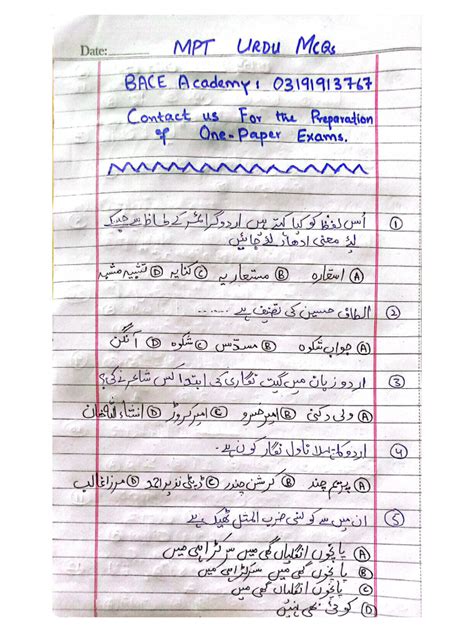 Date:
MPT URDU MCQs
BACE Academy: 03191913767
Contact us For the Preparation
of One-Paper Exams.
① اُس لفظ کو کیا کہتے ہیں اردو گرائمر کے لحاظ سے جسکے
لیے معنی ادھار لئے جائیں
Ⓐ استعارہ Ⓑ مستعار یہ Ⓒ کنایہ Ⓓ تشبیہ مشبہ
② الطاف حسین کی تصنیف ہے .......
Ⓐ جواب شکوہ Ⓑ مسدّس Ⓒ شکوہ Ⓓ آنگن
③ اردو زبان میں گیت نگاری کی ابتدا کس شاعر نے کی؟
Ⓐ ولی دکنی Ⓑ امیر خسرو Ⓒ امیر Ⓓ انشاء اللہ خان
④ اردو کا پہلا ناول نگار کون ہے۔
Ⓐ پریم چند Ⓑ کرشن چندر Ⓒ ڈپٹی نذیر احمد Ⓓ مرزا غالب
⑤ ان میں سے کونسی ضرب المثل ٹھیک ہے
Ⓐ پانچوں انگلیاں گھی میں سر کڑاہی میں
Ⓑ پانچوں گھی میں سر کڑاہی میں
Ⓒ پانچوں انگلیاں گھی میں
Ⓓ کوئی بھی نہیں